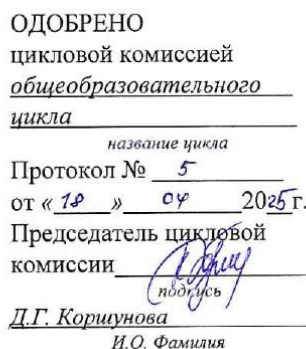 ОДОБРЕНО
цикловой комиссией
общеобразовательного
цикла
название цикла
Протокол № 5
от « 18 » 04 2025г.
Председатель цикловой
комиссии
подпись
Д.Г. Коршунова
И.О. Фамилия